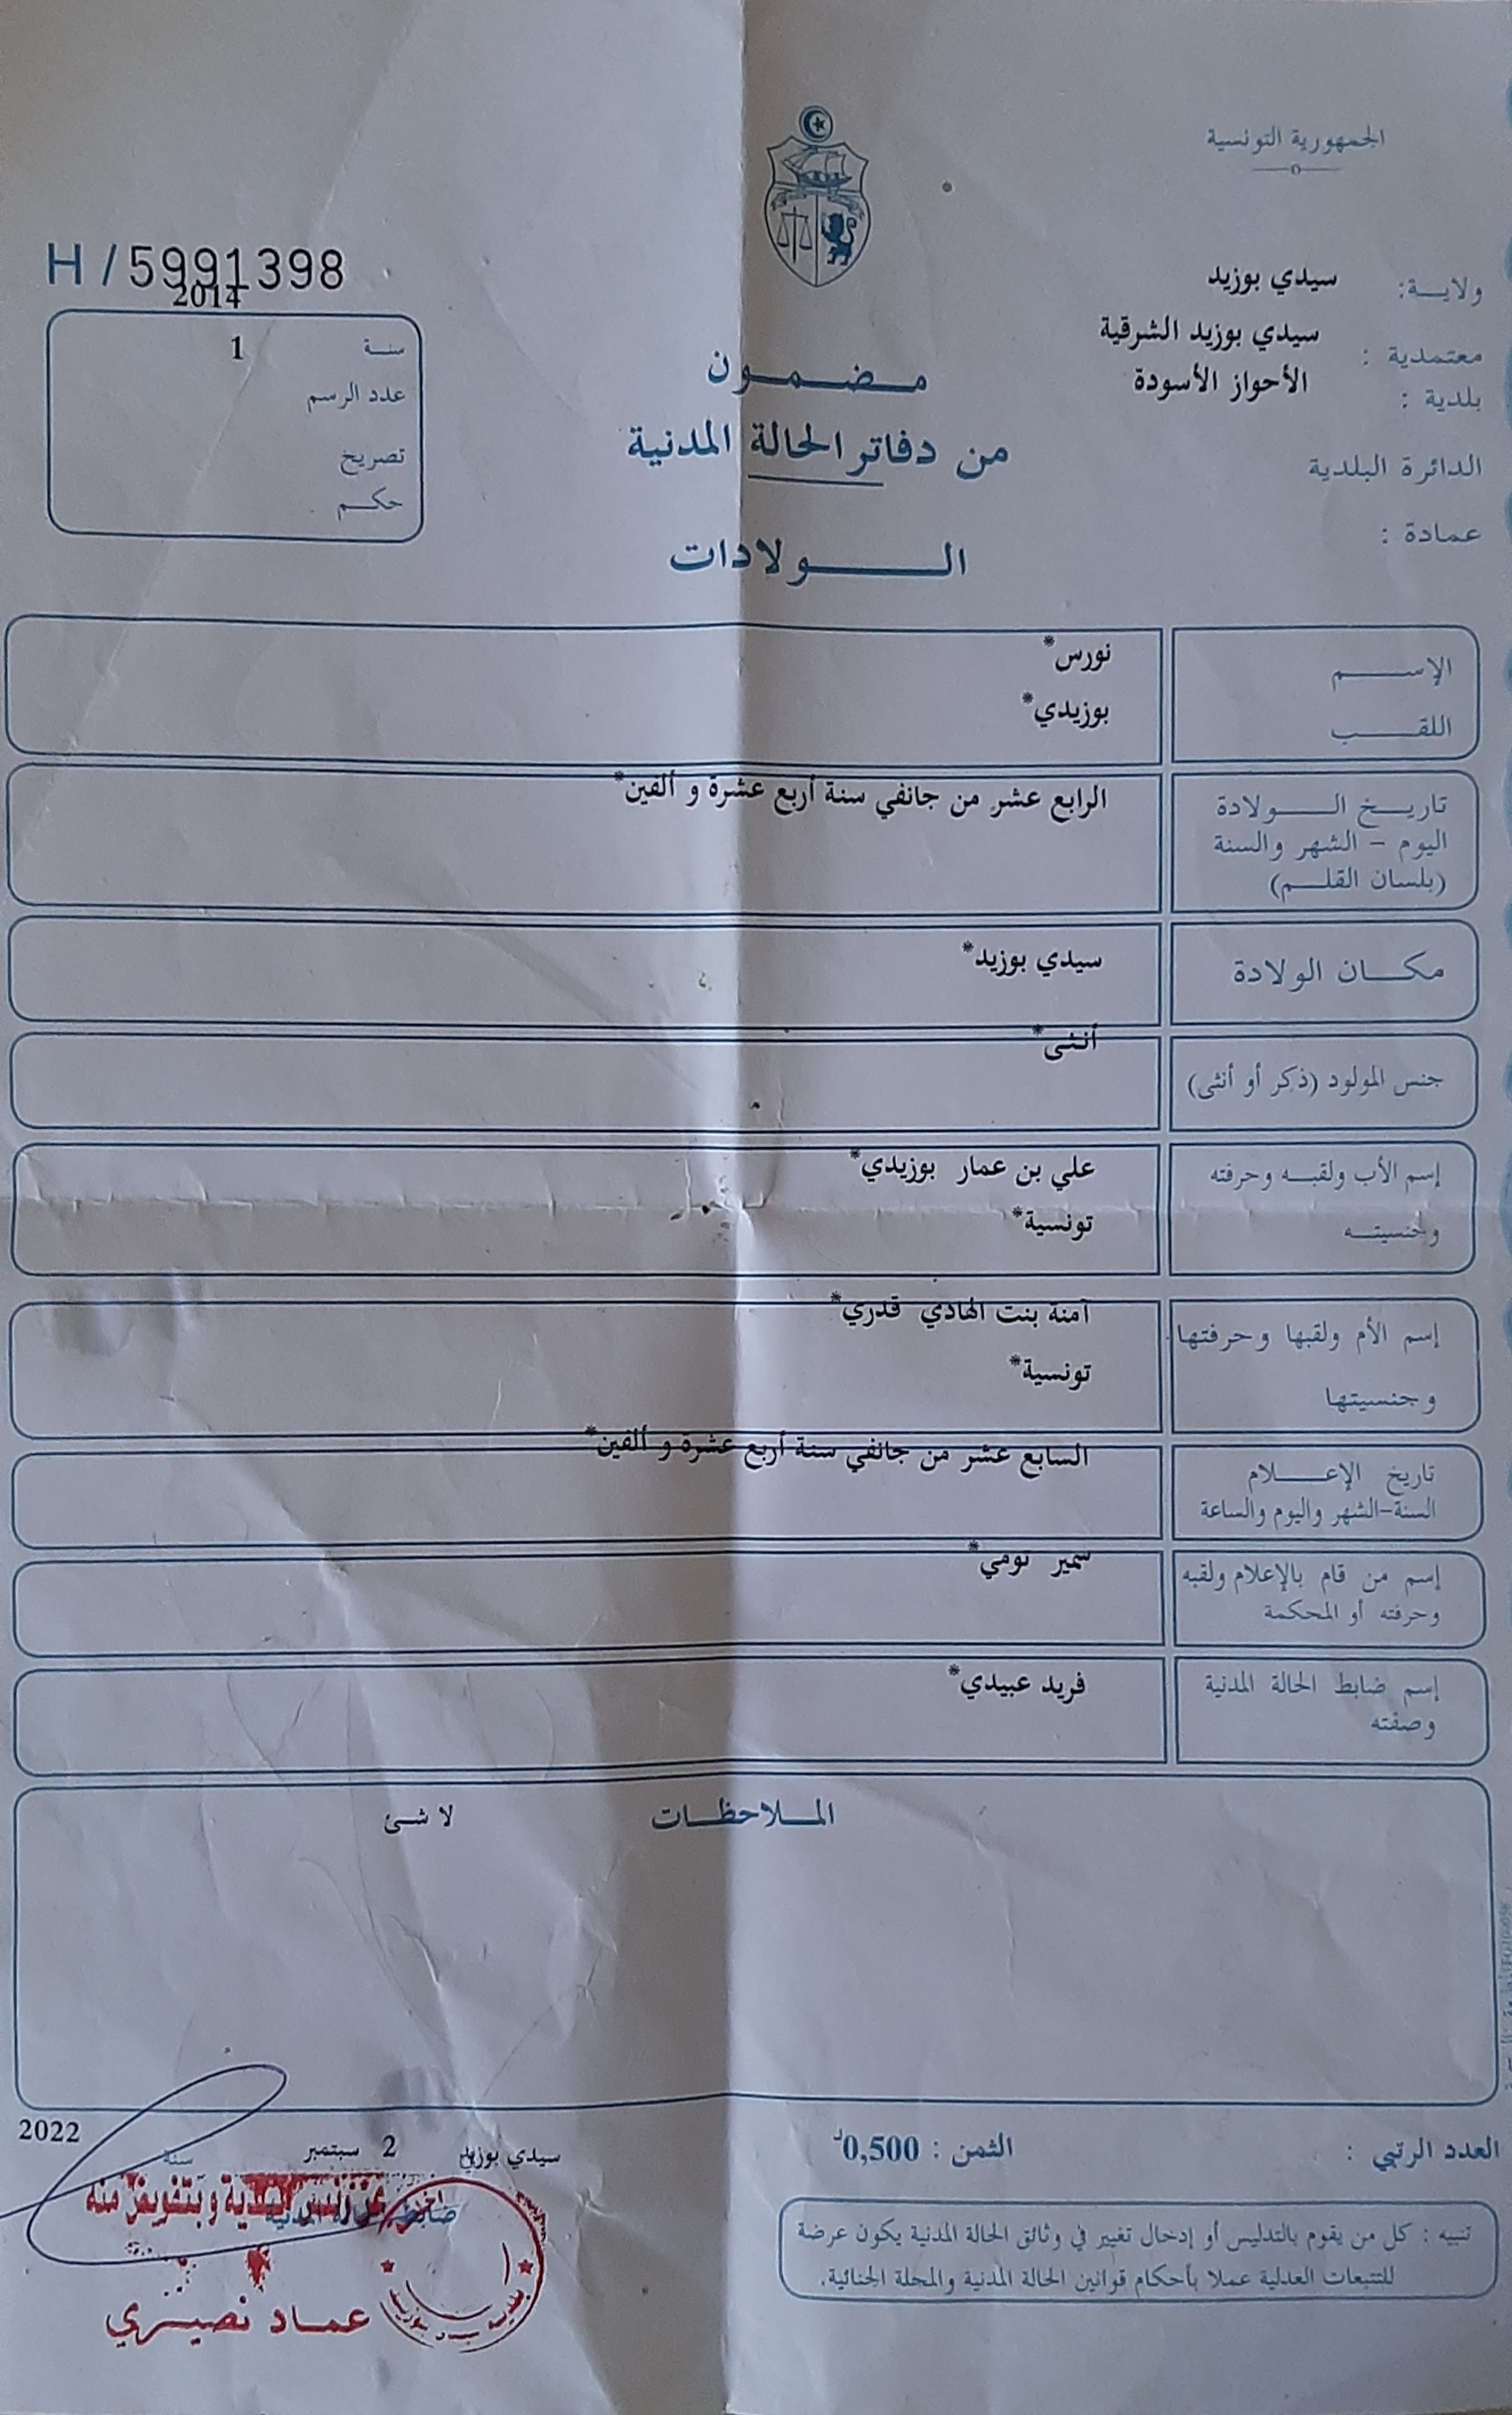 الجمهورية التونسية
ولاية: سيدي بوزيد
معتمدية : سيدي بوزيد الشرقية
بلدية : الأحواز الأسودة
الدائرة البلدية
عمادة :
H / 5991398
2014
سنة 1
عدد الرسم
تصريح
حكم
مضمون
من دفاتر الحالة المدنية
الولادات
الإسم نورس*
اللقب بوزيدي*
تاريخ الولادة الرابع عشر من جانفي سنة أربع عشرة و ألفين*
اليوم - الشهر والسنة
(بلسان القلم)
مكان الولادة سيدي بوزيد*
جنس المولود (ذكر أو أنثى) أنثى*
إسم الأب ولقبه وحرفته علي بن عمار بوزيدي*
وجنسيته تونسية*
إسم الأم ولقبها وحرفتها آمنة بنت الهادي قدري*
وجنسيتها تونسية*
تاريخ الإعلام السابع عشر من جانفي سنة أربع عشرة و ألفين*
السنة-الشهر واليوم والساعة
إسم من قام بالإعلام ولقبه سمير تومي*
وحرفته أو المحكمة
إسم ضابط الحالة المدنية فريد عبيدي*
وصفته
الملاحظات لا شئ
العدد الرتبي : الثمن : 0,500د
سيدي بوزيد 2 سبتمبر سنة 2022
ضابط الحالة المدنية
عن رئيس البلدية وبتفويض منه
عماد نصيري
تنبيه : كل من يقوم بالتدليس أو إدخال تغيير في وثائق الحالة المدنية يكون عرضة
للتتبعات العدلية عملا بأحكام قوانين الحالة المدنية والمجلة الجنائية.